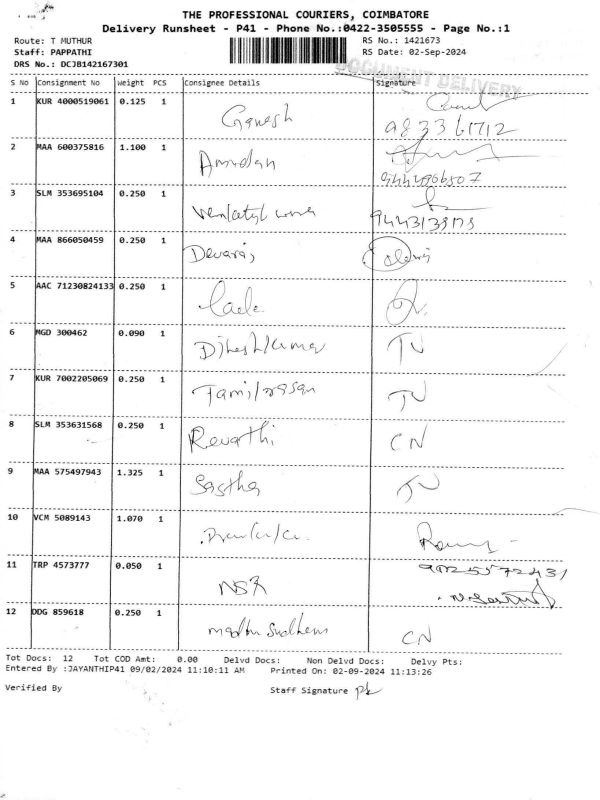 THE PROFESSIONAL COURIERS, COIMBATORE
Delivery Runsheet - P41 - Phone No.:0422-3505555 - Page No.:1
Route: T MUTHUR RS No.: 1421673
Staff: PAPPATHI RS Date: 02-Sep-2024
DRS No.: DCJB142167301
DOCUMENT DELIVERY
S No Consignment No Weight PCS Consignee Details Signature
1 KUR 4000519061 0.125 1 Ganesh
2 MAA 600375816 1.100 1 Amudan
9444966507
3 SLM 353695104 0.250 1
4 MAA 866050459 0.250 1 Devaraj
5 AAC 71230824133 0.250 1
6 MGD 300462 0.090 1 Dineshkumar TU
7 KUR 7002205069 0.250 1 Tamilarasan TU
8 SLM 353631568 0.250 1 Revathi CN
9 MAA 575497943 1.325 1 Sastha TU
10 VCM 5089143 1.070 1
11 TRP 4573777 0.050 1 NSR
12 DDG 859618 0.250 1 CN
Tot Docs: 12 Tot COD Amt: 0.00 Delvd Docs: Non Delvd Docs: Delvy Pts:
Entered By :JAYANTHIP41 09/02/2024 11:10:11 AM Printed On: 02-09-2024 11:13:26
Verified By Staff Signature